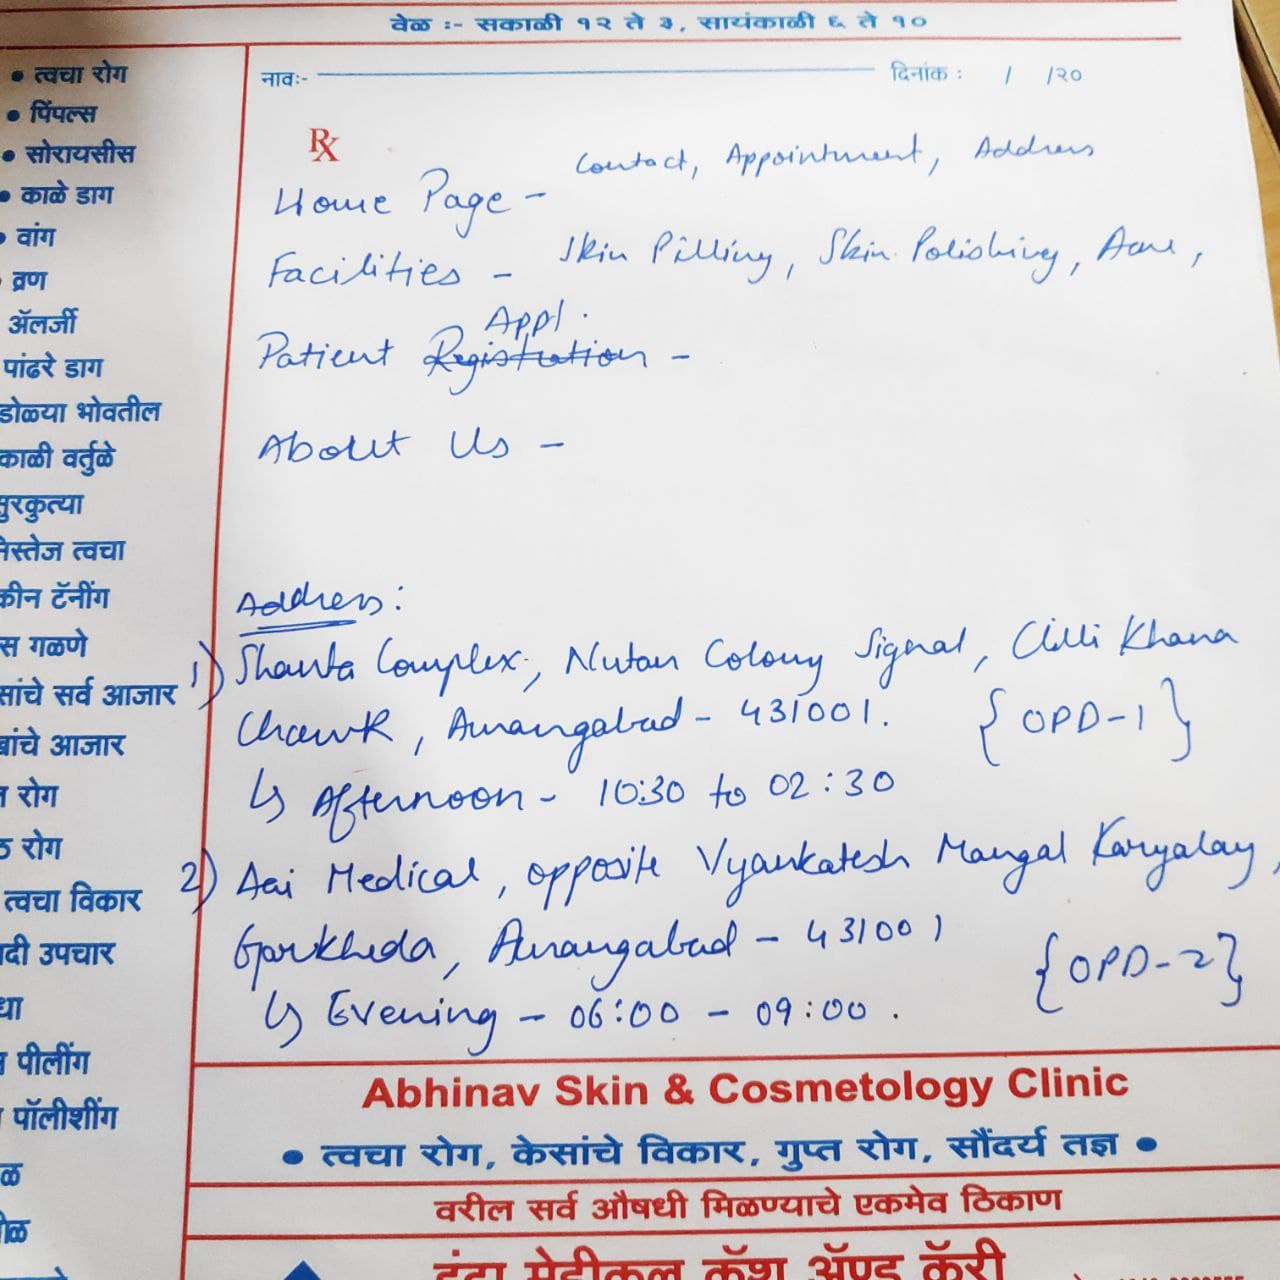 वेळ :- सकाळी १२ ते ३, सायंकाळी ६ ते १०
नावः-
दिनांक : / /२०
• त्वचा रोग
• पिंपल्स
• सोरायसीस
• काळे डाग
• वांग
व्रण
ॲलर्जी
पांढरे डाग
डोळ्या भोवतील
काळी वर्तुळे
सुरकुत्या
निस्तेज त्वचा
स्कीन टॅनींग
गळणे
सर्व आजार
आजार
रोग
रोग
त्वचा विकार
उपचार
पीलींग
पॉलीशींग
Rx
Contact, Appointment, Address
Home Page -
Facilities - Skin Pilling, Skin Polishing, Acne,
Appl.
Patient Registration -
About Us -
Address:
1) Shanta Complex, Nutan Colony Signal, Chilli Khana
Chawk, Aurangabad - 431001. {OPD-1}
↳ Afternoon - 10:30 to 02:30
2) Aai Medical, opposite Vyankatesh Mangal Karyalay,
Garkheda, Aurangabad - 431001 {OPD-2}
↳ Evening - 06:00 - 09:00.
Abhinav Skin & Cosmetology Clinic
• त्वचा रोग, केसांचे विकार, गुप्त रोग, सौंदर्य तज्ञ •
वरील सर्व औषधी मिळण्याचे एकमेव ठिकाण
मेडीकल कॅश ॲण्ड कॅरी